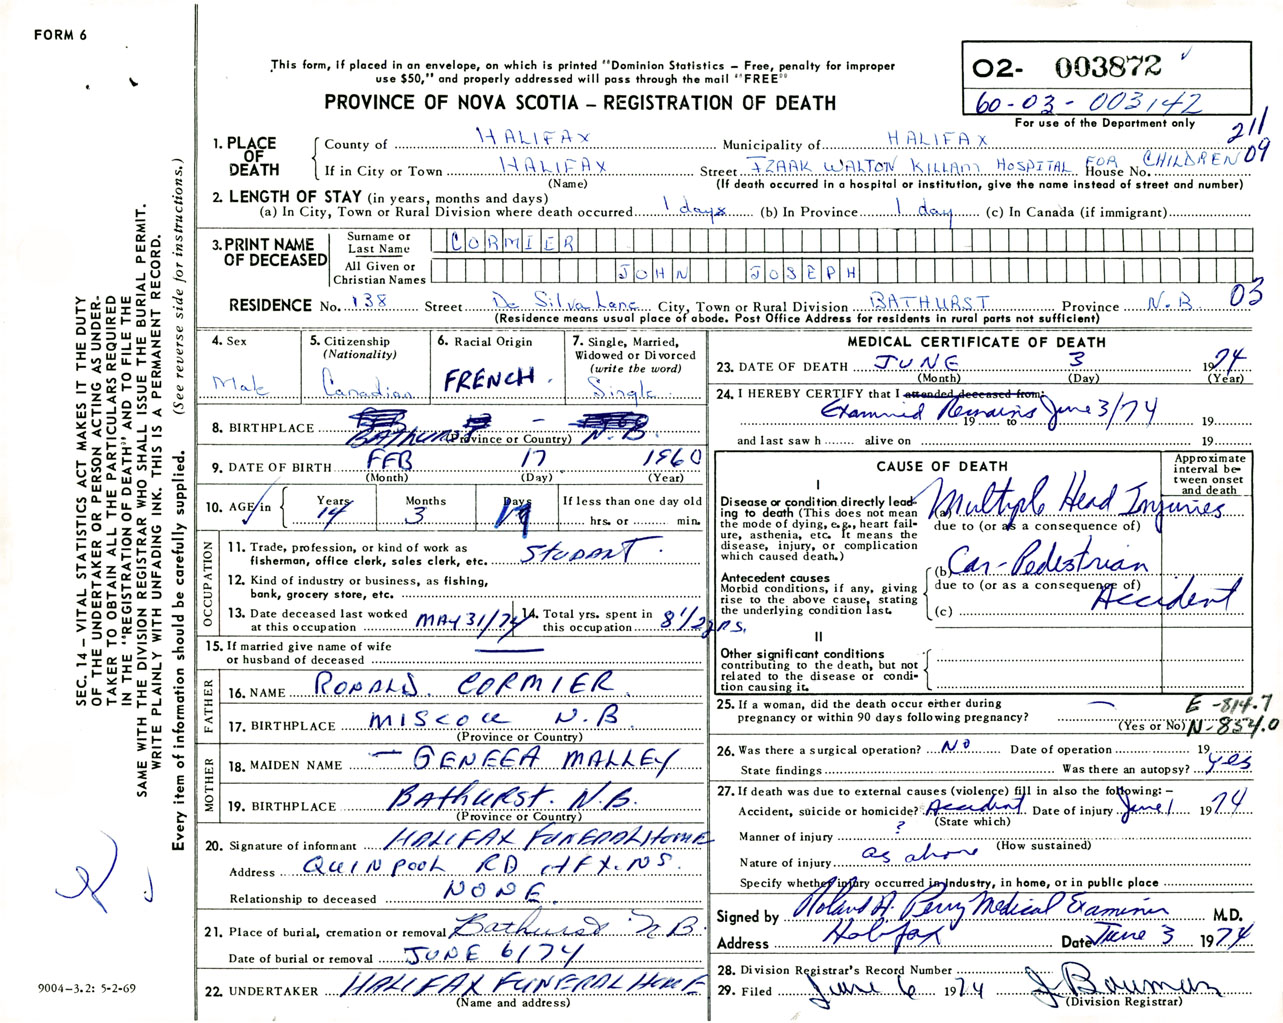 FORM 6
This form, if placed in an envelope, on which is printed "Dominion Statistics – Free, penalty for improper
use $50," and properly addressed will pass through the mail "FREE"
PROVINCE OF NOVA SCOTIA – REGISTRATION OF DEATH
02- 003872
60-03-003142
For use of the Department only
211
09
1. PLACE OF DEATH
County of HALIFAX Municipality of HALIFAX
If in City or Town HALIFAX Street IZAAK WALTON KILLAM HOSPITAL FOR CHILDREN House No.
(Name) (If death occurred in a hospital or institution, give the name instead of street and number)
2. LENGTH OF STAY (in years, months and days)
(a) In City, Town or Rural Division where death occurred 1 days (b) In Province 1 day (c) In Canada (if immigrant)
3. PRINT NAME OF DECEASED
Surname or Last Name CORMIER
All Given or Christian Names JOHN JOSEPH
RESIDENCE No. 138 Street De Silva Lane City, Town or Rural Division BATHURST Province N.B. 03
(Residence means usual place of abode. Post Office Address for residents in rural parts not sufficient)
4. Sex
Male
5. Citizenship
(Nationality)
Canadian
6. Racial Origin
FRENCH.
7. Single, Married,
Widowed or Divorced
(write the word)
Single
8. BIRTHPLACE BATHURST N.B.
(Province or Country)
9. DATE OF BIRTH FEB 17 1960
(Month) (Day) (Year)
10. AGE in
Years 14
Months 3
Days
If less than one day old
hrs. or min.
OCCUPATION
11. Trade, profession, or kind of work as
fisherman, office clerk, sales clerk, etc. STUDANT.
12. Kind of industry or business, as fishing,
bank, grocery store, etc.
13. Date deceased last worked
at this occupation MAY 31/74
14. Total yrs. spent in
this occupation 8 1/2 yrs.
15. If married give name of wife
or husband of deceased
FATHER
16. NAME RONALD. CORMIER.
17. BIRTHPLACE MISCOU N.B.
(Province or Country)
MOTHER
18. MAIDEN NAME – GENEEA MALLEY
19. BIRTHPLACE BATHURST. N.B.
(Province or Country)
20. Signature of informant HALIFAX FUNERAL HOME
Address QUINPOOL RD HFX. NS.
Relationship to deceased NONE.
21. Place of burial, cremation or removal Bathurst N.B.
Date of burial or removal JUNE 6/74
22. UNDERTAKER HALIFAX FUNERAL HOME
(Name and address)
MEDICAL CERTIFICATE OF DEATH
23. DATE OF DEATH JUNE 3 1974
(Month) (Day) (Year)
24. I HEREBY CERTIFY that I attended deceased from:
Examined Remains June 3/74
19 to 19
and last saw h alive on 19
CAUSE OF DEATH
Approximate
interval be-
tween onset
and death
I
Disease or condition directly lead-
ing to death (This does not mean
the mode of dying, e.g., heart fail-
ure, asthenia, etc. It means the
disease, injury, or complication
which caused death.)
(a) Multiple Head Injuries
due to (or as a consequence of)
Antecedent causes
Morbid conditions, if any, giving
rise to the above cause, stating
the underlying condition last.
(b) Car-Pedestrian
due to (or as a consequence of)
Accident
(c)
II
Other significant conditions
contributing to the death, but not
related to the disease or condi-
tion causing it.
25. If a woman, did the death occur either during
pregnancy or within 90 days following pregnancy? —
(Yes or No)
E-814.7
N-854.0
26. Was there a surgical operation? NO Date of operation 19
State findings Was there an autopsy? Yes
27. If death was due to external causes (violence) fill in also the following: –
Accident, suicide or homicide? Accident Date of injury June 1 1974
(State which)
Manner of injury ?
(How sustained)
Nature of injury as above
Specify whether injury occurred in industry, in home, or in public place
Signed by Roland A. Perry Medical Examiner M.D.
Address Halifax Date June 3 1974
28. Division Registrar's Record Number
29. Filed June 6 1974 J Bauman
(Division Registrar)
SEC. 14 – VITAL STATISTICS ACT MAKES IT THE DUTY
OF THE UNDERTAKER OR PERSON ACTING AS UNDER-
TAKER TO OBTAIN ALL THE PARTICULARS REQUIRED
IN THE "REGISTRATION OF DEATH" AND TO FILE THE
SAME WITH THE DIVISION REGISTRAR WHO SHALL ISSUE THE BURIAL PERMIT.
WRITE PLAINLY WITH UNFADING INK. THIS IS A PERMANENT RECORD.
Every item of information should be carefully supplied. (See reverse side for instructions.)
9004-3.2: 5-2-69